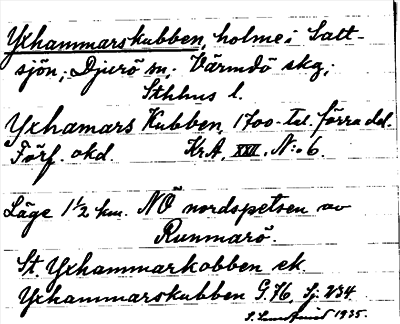 Yxhammarskubben, holme i Salt-
sjön; Djurö sn; Värmdö skg;
Sthlms l.
Yxhamars Kubben 1700-tal. förra del.
Förf. okd. KrA, XXII, N:o 6.
Läge 1 1/2 km. NÖ nordspetsen av
Runmarö.
St. Yxhammarkobben ek.
Yxhammarskubben G. 76, Sj. 234.
1935.